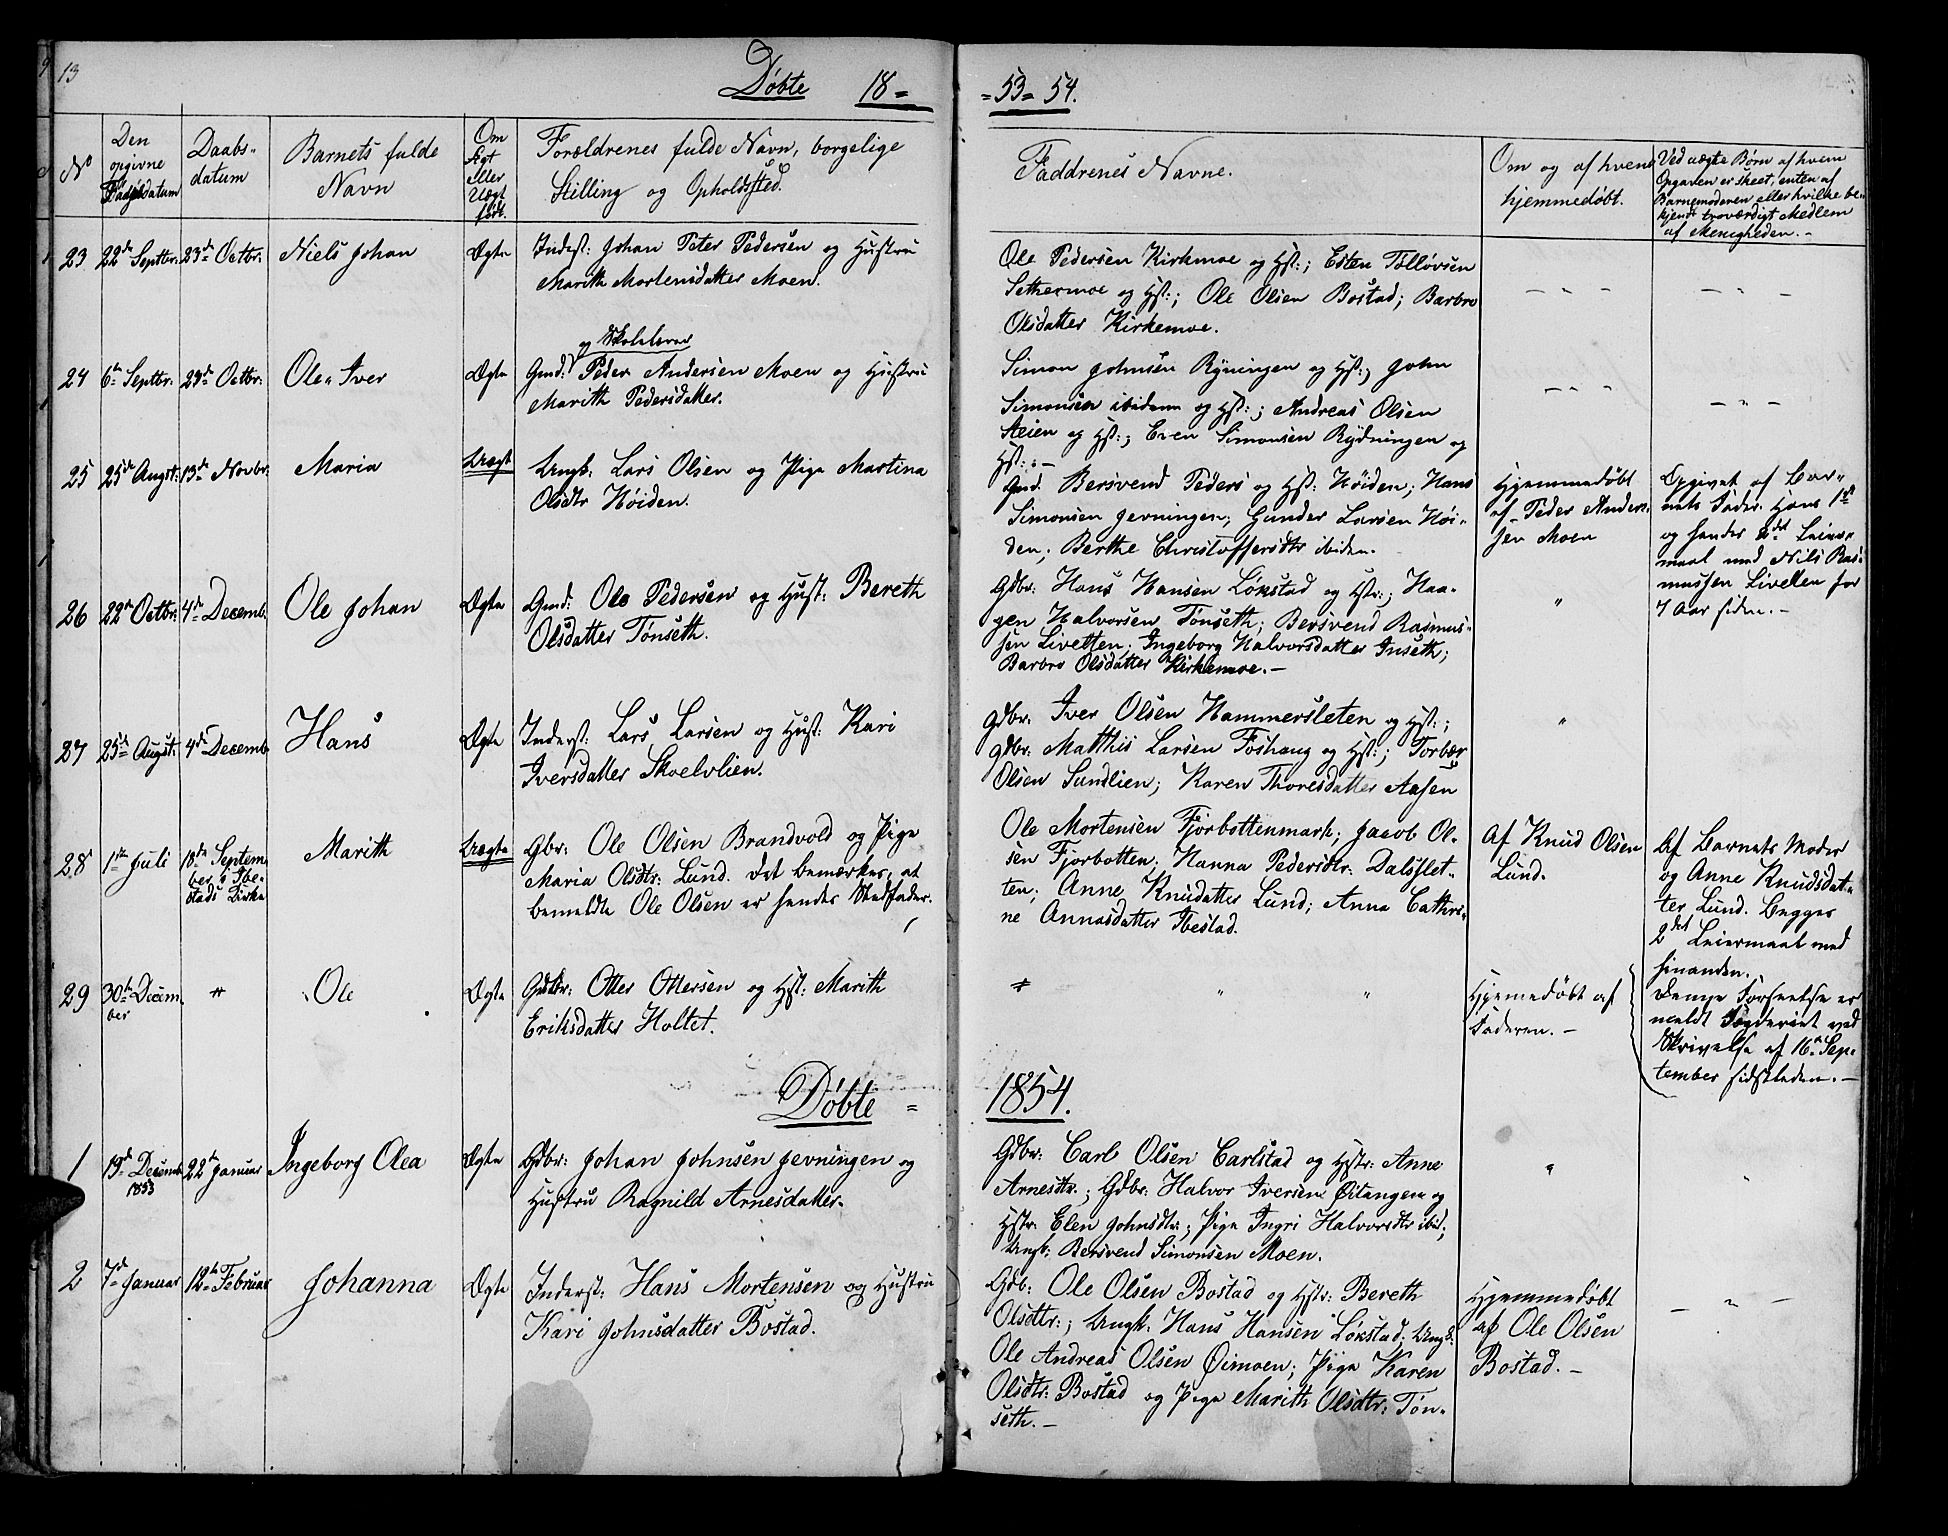 13
Døbte 18=
=53=54.
No
Den opgivne Fødselsdatum
Daabs-datum
Barnets fulde Navn
Om Ægt Eller Uægt født.
Forældrenes fulde Navn, borgelige Stilling og Opholdsted.
Faddrenes Navne.
Om og af hvem hjemmedøbt.
Ved uægte Børn af hvem Opgaven er skeet, enten af Barnemoderen eller hvilke bekjendt troværdigt Medlem af Menigheden.-
23 22de Septbr: 23de Octbr: Niels Johan Ægte Inderst: Johan Peter Pedersen og Hustru
Marith Mortensdatter Moen.
Ole Pedersen Kirkmoe og Hst:; Esten Tolløvsen
Sethermoe og Hst:; Ole Olsen Bostad; Barbro
Olsdatter Kirkemoe.
og Skolelærer
24 6te Septbr: 23de Octbr: Ole Iver Ægte Gmd: Peder Andersen Moen og Hustru
Marith Pedersdatter.
Simon Johnsen Rÿningen og Hst:; John
Simonsen ibidem og Hst:; Andreas Olsen
Steien og Hst:; Even Simonsen Rÿdningen og
Hst:.-
25 25de Augst: 13de Novbr. Maria Uægt Ungk: Lars Olsen og Pige Martina
Olsdtr Høiden.
Gmd. Bersvend Peders og Hst: Høiden; Hans
Simonsen Jevningen; Gunder Larsen Høi-
den; Berthe Christoffersdtr ibiden.
Hjemmedøbt
af Peder Ander-
sen Moen
Opgivet af Bar-
nets Fader. Hans 1ste
og hendes 2det Leier-
maal med Nils Ras-
mussen Livelten for
7 Aar siden.-
26 22de Octbr: 4de Decemb. Ole Johan Ægte Gmd: Ole Pedersen og Hust: Bereth
Olsdatter Tønseth.
Gdbr: Hans Hansen Løkstad og Hstr:; Haa-
gen Halvorsen Tønseth; Bersvend Rasmus-
sen Livelten; Ingeborg Halvorsdatter Inseth;
Barbro Olsdatter Kirkemoe.-
27 25de Augst: 4de Decemb Hans Ægte Inderst: Lars Larsen og Hust: Kari
Iversdatter Skoelvlien.
Gdbr: Iver Olsen Hammersleten og Hst:;
Gdbr: Matthis Larsen Foshaug og Hst:; Torber
Olsen Sundlien; Karen Thoresdatter Aasen
28 1ste Juli 18de Septem
ber i Ibe-
stads Kirke
Marith Uægte Gbr: Ole Olsen Brandvold og Pige
Maria Olsdtr: Lund. Det bemærkes, at
bemeldte Ole Olsen er hendes Stedfader.
Ole Mortensen Fjorbottenmark; Jacob Ol-
sen Fjorbotten; Hanna Pedersdtr: Dalsslet-
ten; Anne Knudatter Lund; Anna Cathri-
ne Annasdatter Ibestad.
Af Knud Olsen
Lund.
Af Barnets Moder
og Anne Knudsdat-
ter Lund. Begges
2det Leiermaal med
hinanden.
Denne Forseelse er
meldt Fogderiet ved
Skrivelse af 16de Sep-
tember sidstleden.-
29 30te Decem
ber
" Ole Ægte Gdbr: Otter Ottersen og Hst: Marith
Eriksdatter Holtet.
" " "
Hjemmedøbt af
Faderen.-
Døbte =
1854.
1 19de Decemb
1853
22de Januar Ingeborg Olea Ægte Gdbr: Johan Johnsen Jevningen og
Hustru Ragnild Arnesdatter.
Gdbr: Carl Olsen Carlstad og Hstr: Anne
Arnesdtr.; Gdbr: Halvor Iversen Øitangen og
Hstr: Elen Johnsdtr:; Pige Ingri Halvorsdtr ibid;
Ungk: Bersvend Simonsen Moen.
2 7de Januar 12te Februar Johanna Ægte Inderst: Hans Mortensen og Hustru
Kari Johnsdatter Bostad.
Gdb: Ole Olsen Bostad og Hstr: Bereth
Olsdtr:; Ungk. Hans Hansen Løkstad; Ungk:
Ole Andreas Olsen Øimoen; Pige Karen
Olsdtr: Bostad og Pige Marith Olsdtr: Tøn-
seth.-
Hjemmedøbt
af Ole Olsen
Bostad.-